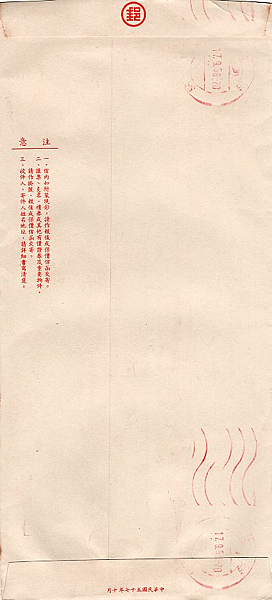 郵
注意
一、信內如附裝現鈔，請作報值或保價信函交寄。
二、匯票、支票、禮券或其他有價證券及重要物件，
請作掛號、報值或保價信函交寄。
三、收件人、寄件人姓名地址，請詳細書寫清楚。
17.9.
70
17.9.
70
中華民國五十七年十月